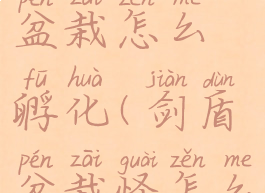 pén zāi zěn me
盆栽怎么
fū huà jiàn dùn
孵化(剑盾
pén zāi guài zěn me
盆栽怪怎么